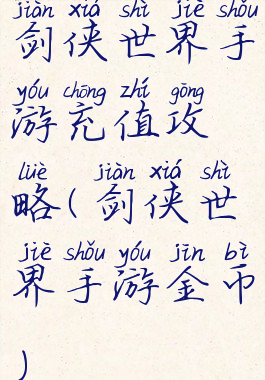 jiàn xiá shì jiè shǒu
剑侠世界手
yóu chōng zhí gōng
游充值攻
lüè jiàn xiá shì
略(剑侠世
jiè shǒu yóu jīn bì
界手游金币
)